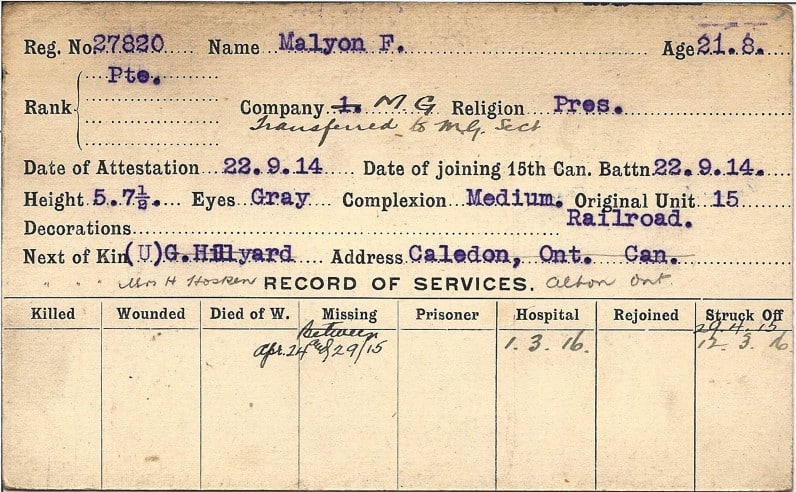 Reg. No. 27820 Name Malyon F. Age 21.8.
Pte.
Rank Company 1. M G Religion Pres.
Transferred to M.G. Sect
Date of Attestation 22.9.14 Date of joining 15th Can. Battn. 22.9.14.
Height 5.7½. Eyes Gray Complexion Medium. Original Unit 15
Decorations Railroad.
Next of Kin (U) G. Hillyard Address Caledon, Ont. Can.
" " " Mrs H Hosken RECORD OF SERVICES. Alton Ont
Killed Wounded Died of W. Missing Prisoner Hospital Rejoined Struck Off
Between 29.4.15
Apr. 24th & 29/15 1. 3. 16. 12. 3. 16